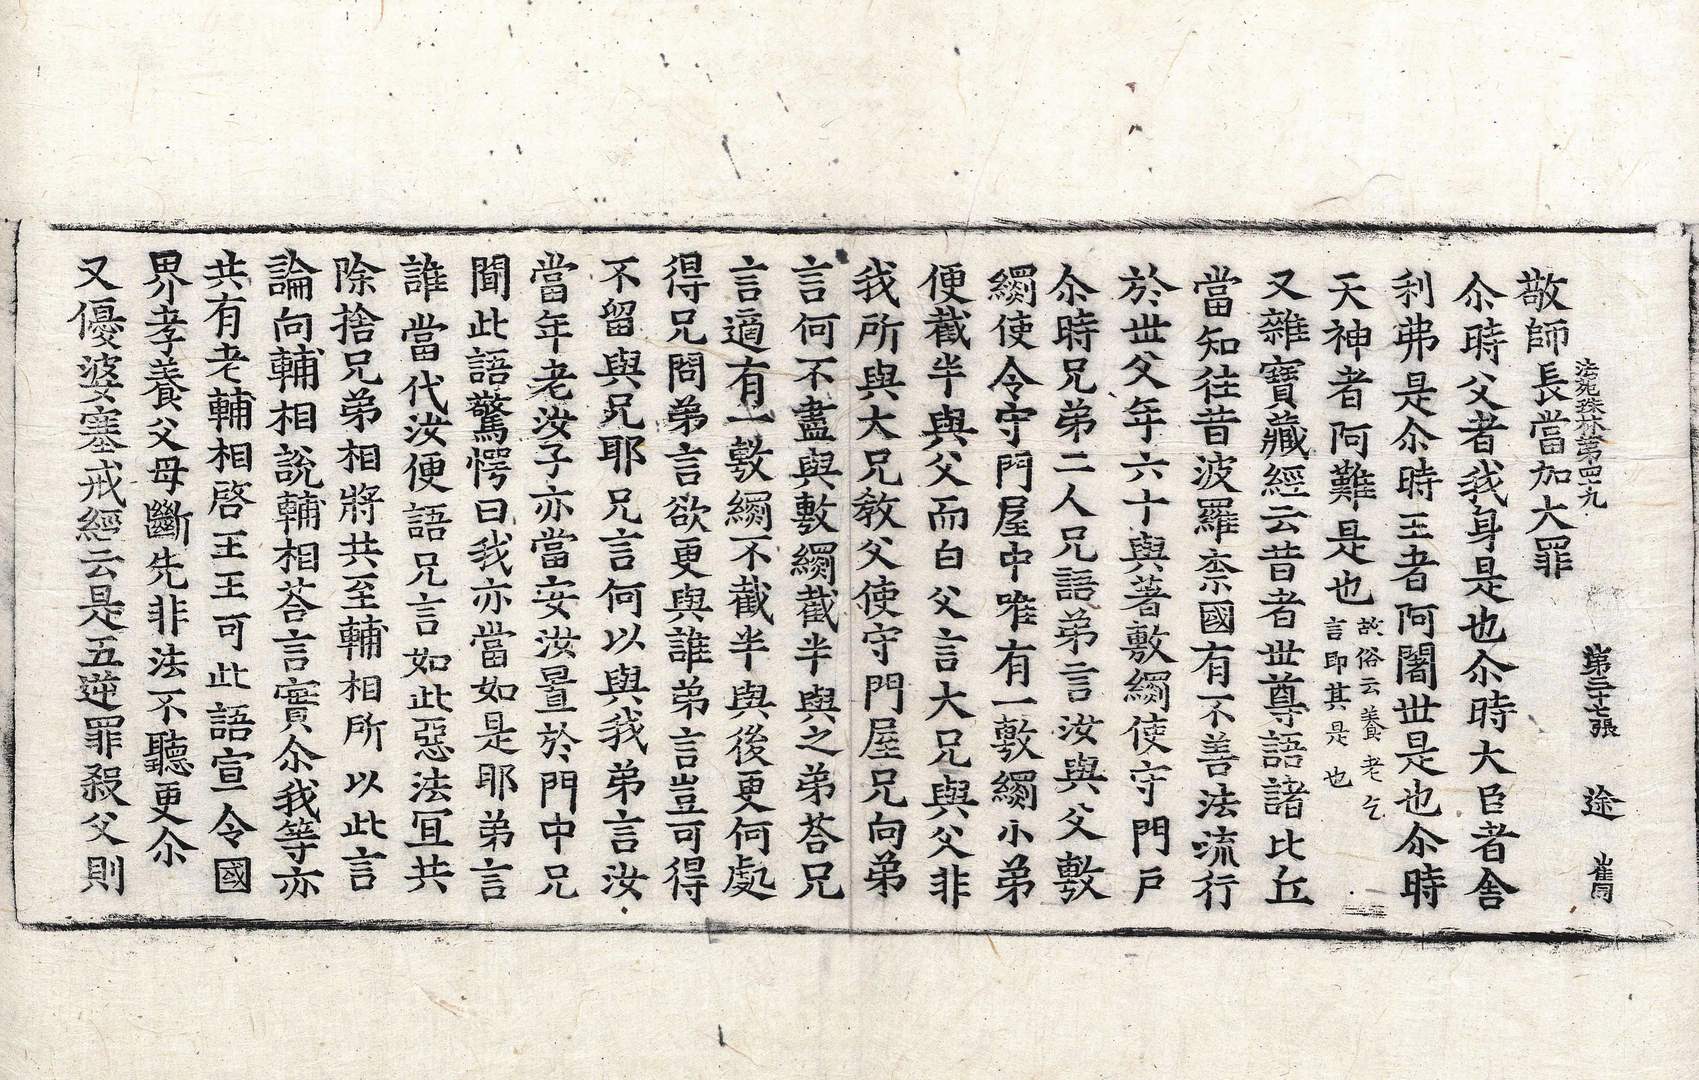 法苑珠林第四九 第二十七張 途 崔同
敬師長當加大罪
尒時父者我身是也尒時大臣者舍
利弗是尒時王者阿闍世是也尒時
天神者阿難是也故俗云養老乞言即其是也
又雜寶藏經云昔者世尊語諸比丘
當知往昔波羅柰國有不善法流行
於世父年六十與著敷𦆲使守門戶
尒時兄弟二人兄語弟言汝與父敷
𦆲使令守門屋中唯有一敷𦆲小弟
便截半與父而白父言大兄與父非
我所與大兄教父使守門屋兄向弟
言何不盡與敷𦆲截半與之弟荅兄
言適有一敷𦆲不截半與後更何處
得兄問弟言欲更與誰弟言豈可得
不留與兄耶兄言何以與我弟言汝
當年老汝子亦當安汝置於門中兄
聞此語驚愕曰我亦當如是耶弟言
誰當代汝便語兄言如此惡法冝共
除捨兄弟相將共至輔相所以此言
論向輔相說輔相荅言實尒我等亦
共有老輔相啓王王可此語宣令國
界孝養父母斷先非法不聽更尒
又優婆塞戒經云是五逆罪殺父則